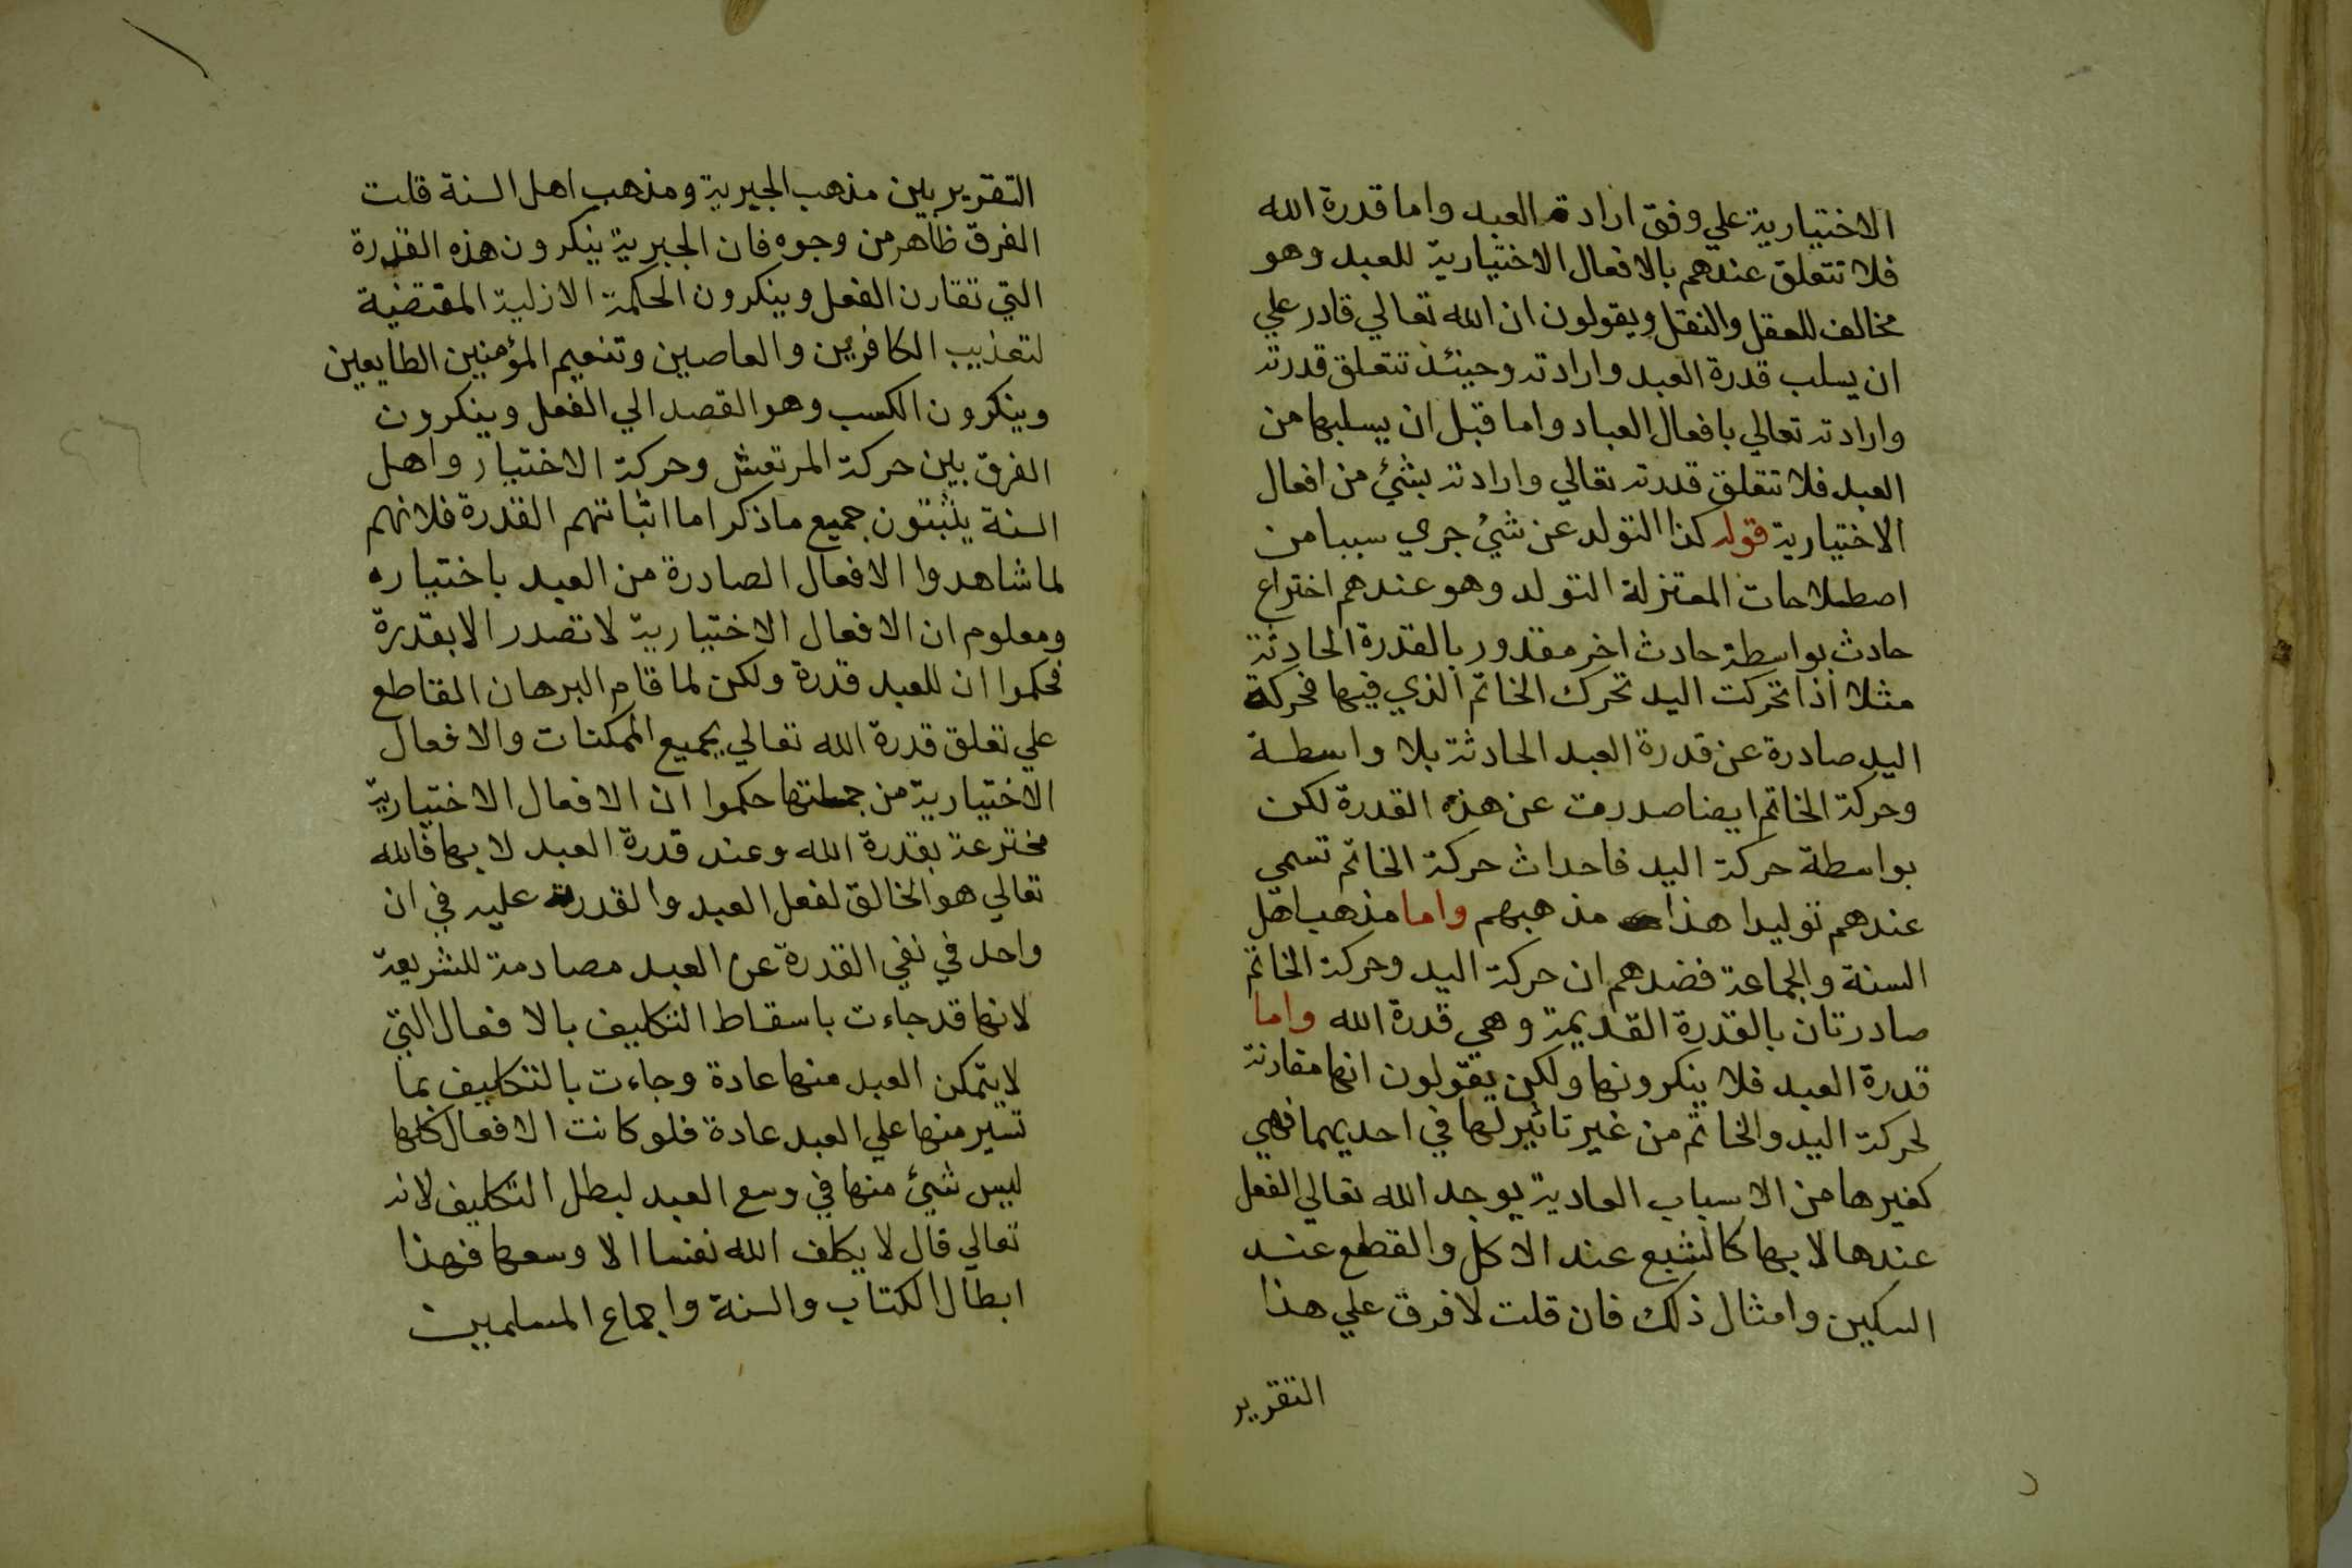 الاختيارية علي وفق ارادة العبد واما قدرة الله
فلا تتعلق عندهم بالافعال الاختيارية للعبد وهو
مخالف للعقل والنقل ويقولون ان الله تعالي قادر علي
ان يسلب قدرة العبد وارادته وحينئذ تتعلق قدرته
وارادته تعالي بافعال العباد واما قبل ان يسلبها من
العبد فلا تتعلق قدرته تعالي وارادته بشئ من افعال
الاختيارية قوله كذا التولد عن شئ جري سببا من
اصطلاحات المعتزلة التولد وهو عندهم اختراع
حادث بواسطة حادث اخر مقدور بالقدرة الحادثة
مثلا اذا تحركت اليد تحرك الخاتم الذي فيها فحركة
اليد صادرة عن قدرة العبد الحادثة بلا واسطة
وحركة الخاتم ايضا صدرت عن هذه القدرة لكن
بواسطة حركة اليد فاحداث حركة الخاتم تسمي
عندهم توليدا هذا مذهبهم واما مذهب اهل
السنة والجماعة فضدهم ان حركة اليد وحركة الخاتم
صادرتان بالقدرة القديمة وهي قدرة الله واما
قدرة العبد فلا ينكرونها ولكن يقولون انها مقارنة
لحركة اليد والخاتم من غير تاثير لها في احديهما فهي
كغيرها من الاسباب العادية يوجد الله تعالي الفعل
عندها لا بها كالشبع عند الاكل والقطع عند
السكين وامثال ذلك فان قلت لا فرق علي هذا
التقرير
التقرير بين مذهب الجبرية ومذهب اهل السنة قلت
الفرق ظاهر من وجوه فان الجبرية ينكرون هذه القدرة
التي تقارن الفعل وينكرون الحكمة الازلية المقتضية
لتعذيب الكافرين والعاصين وتنعيم المؤمنين الطايعين
وينكرون الكسب وهو القصد الي الفعل وينكرون
الفرق بين حركة المرتعش وحركة الاختيار واهل
السنة يثبتون جميع ما ذكر اما اثباتهم القدرة فلانهم
لما شاهدوا الافعال الصادرة من العبد باختياره
ومعلوم ان الافعال الاختيارية لا تصدر الا بقدرة
فحكموا ان للعبد قدرة ولكن لما قام البرهان القاطع
علي تعلق قدرة الله تعالي بجميع الممكنات والافعال
الاختيارية من جملتها حكموا ان الافعال الاختيارية
مخترعة بقدرة الله وعند قدرة العبد لا بها فالله
تعالي هو الخالق لفعل العبد والقدرة عليه في ان
واحد في نفي القدرة عن العبد مصادمة للشريعة
لانها قد جاءت باسقاط التكليف بالافعال التي
لا يتمكن العبد منها عادة وجاءت بالتكليف بما
تسير منها علي العبد عادة فلو كانت الافعال كلها
ليس شئ منها في وسع العبد لبطل التكليف لانه
تعالي قال لا يكلف الله نفسا الا وسعها فهذا
ابطال الكتاب والسنة واجماع المسلمين